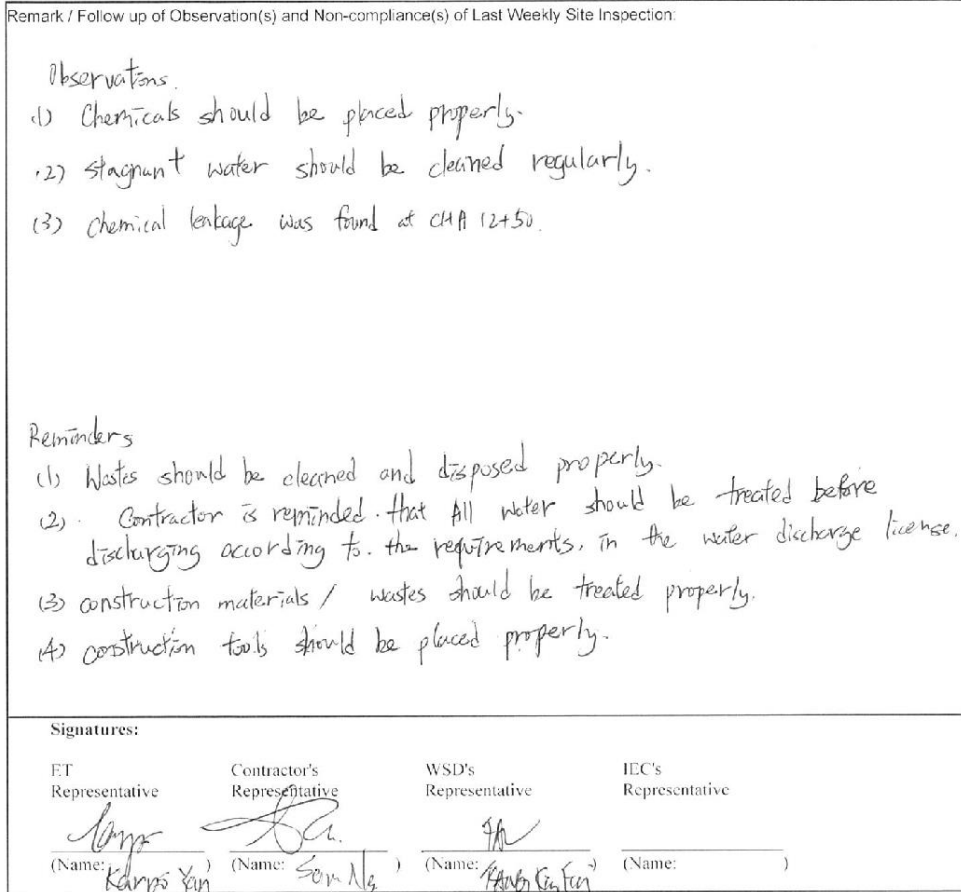 Remark / Follow up of Observation(s) and Non-compliance(s) of Last Weekly Site Inspection:
Observations.
(1) Chemicals should be placed properly.
(2) stagnant water should be cleaned regularly.
(3) chemical leakage was found at CHA 12+50.
Reminders
(1) Wastes should be cleaned and disposed properly.
(2). Contractor is reminded. that All water should be treated before
discharging according to. the requirements. in the water discharge license.
(3) construction materials / wastes should be treated properly.
(4) construction tools should be placed properly.
Signatures:
ET Contractor's WSD's IEC's
Representative Representative Representative Representative
(Name: Yan) (Name: Ng) (Name: ) (Name: )